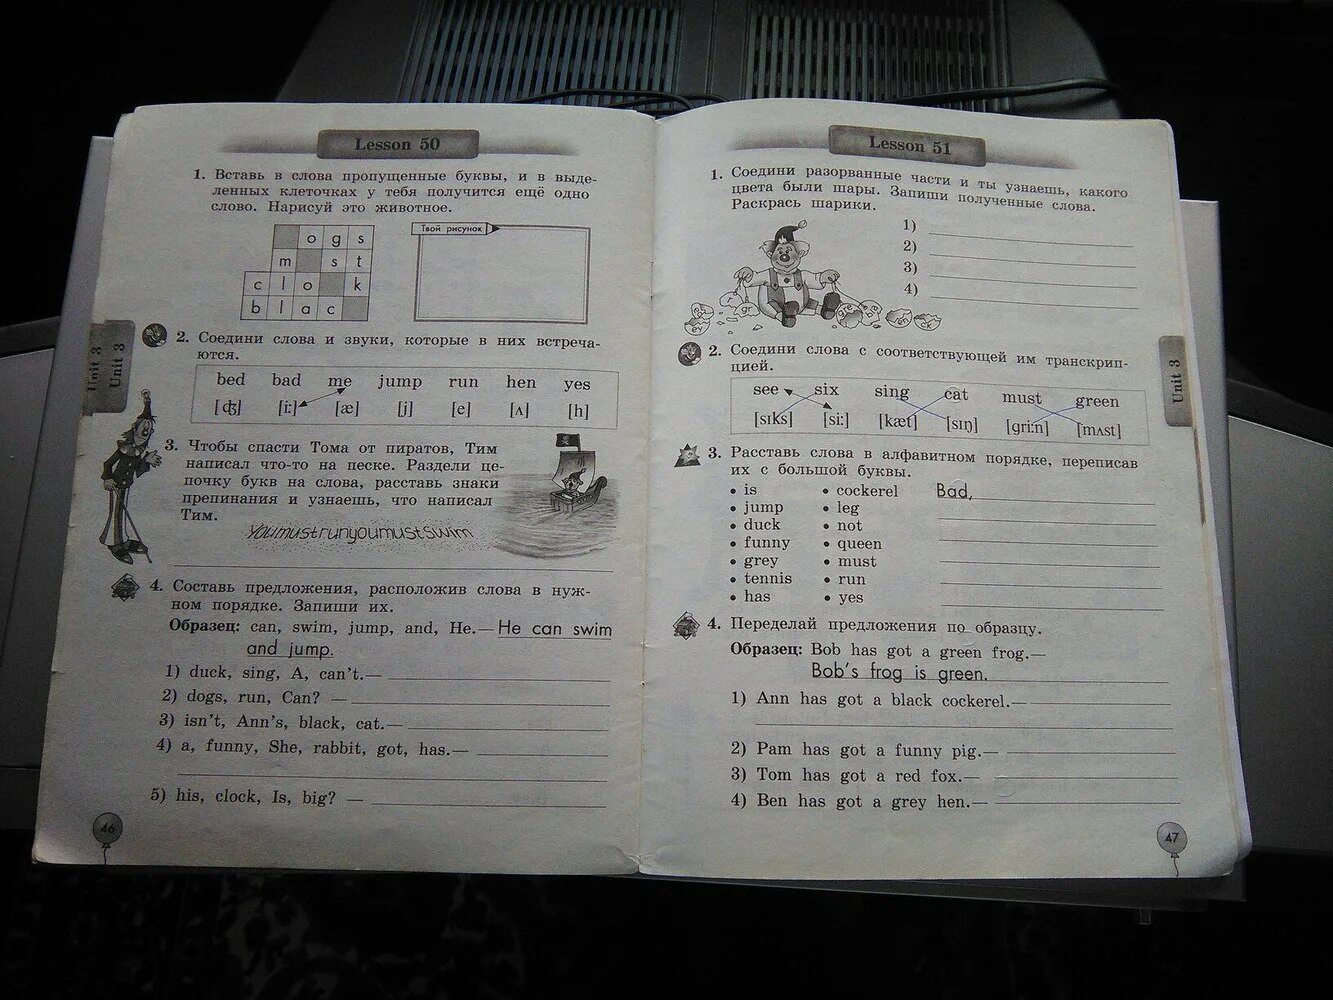 Lesson 50
1. Вставь в слова пропущенные буквы, и в выде-
ленных клеточках у тебя получится ещё одно
слово. Нарисуй это животное.
o g s
m s t
c l o k
b l a c
Твой рисунок
2. Соедини слова и звуки, которые в них встреча-
ются.
bed bad me jump run hen yes
[ʤ] [i:] [æ] [j] [e] [ʌ] [h]
3. Чтобы спасти Тома от пиратов, Тим
написал что-то на песке. Раздели це-
почку букв на слова, расставь знаки
препинания и узнаешь, что написал
Тим.
Youmustrunyoumustswim
4. Составь предложения, расположив слова в нуж-
ном порядке. Запиши их.
Образец: can, swim, jump, and, He.— He can swim
and jump.
1) duck, sing, A, can't.—
2) dogs, run, Can? —
3) isn't, Ann's, black, cat.—
4) a, funny, She, rabbit, got, has.—
5) his, clock, Is, big? —
46
Unit 3
Unit 3
Lesson 51
1. Соедини разорванные части и ты узнаешь, какого
цвета были шары. Запиши полученные слова.
Раскрась шарики.
1)
2)
3)
4)
gr
2. Соедини слова с соответствующей им транскрип-
цией.
see six sing cat must green
[sɪks] [si:] [kæt] [sɪŋ] [gri:n] [mʌst]
3. Расставь слова в алфавитном порядке, переписав
их с большой буквы.
• is • cockerel Bad,
• jump • leg
• duck • not
• funny • queen
• grey • must
• tennis • run
• has • yes
4. Переделай предложения по образцу.
Образец: Bob has got a green frog.—
Bob's frog is green.
1) Ann has got a black cockerel.—
2) Pam has got a funny pig.—
3) Tom has got a red fox.—
4) Ben has got a grey hen.—
47
Unit 3